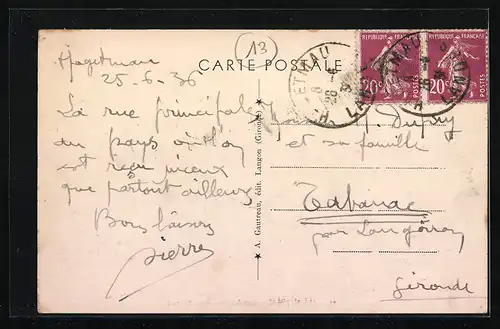 13
CARTE POSTALE
Hagetmau
25-6-36
La rue principale
du pays où l'on
est reçu mieux
que partout ailleurs
Bons baisers
Pierre
★ A. Gautreau, édit. Langon (Gironde) ★
REPUBLIQUE FRANÇAISE
20c
REPUBLIQUE FRANÇAISE
20c
Dupuy
et sa famille
Tabanac
par Langoiran
Gironde